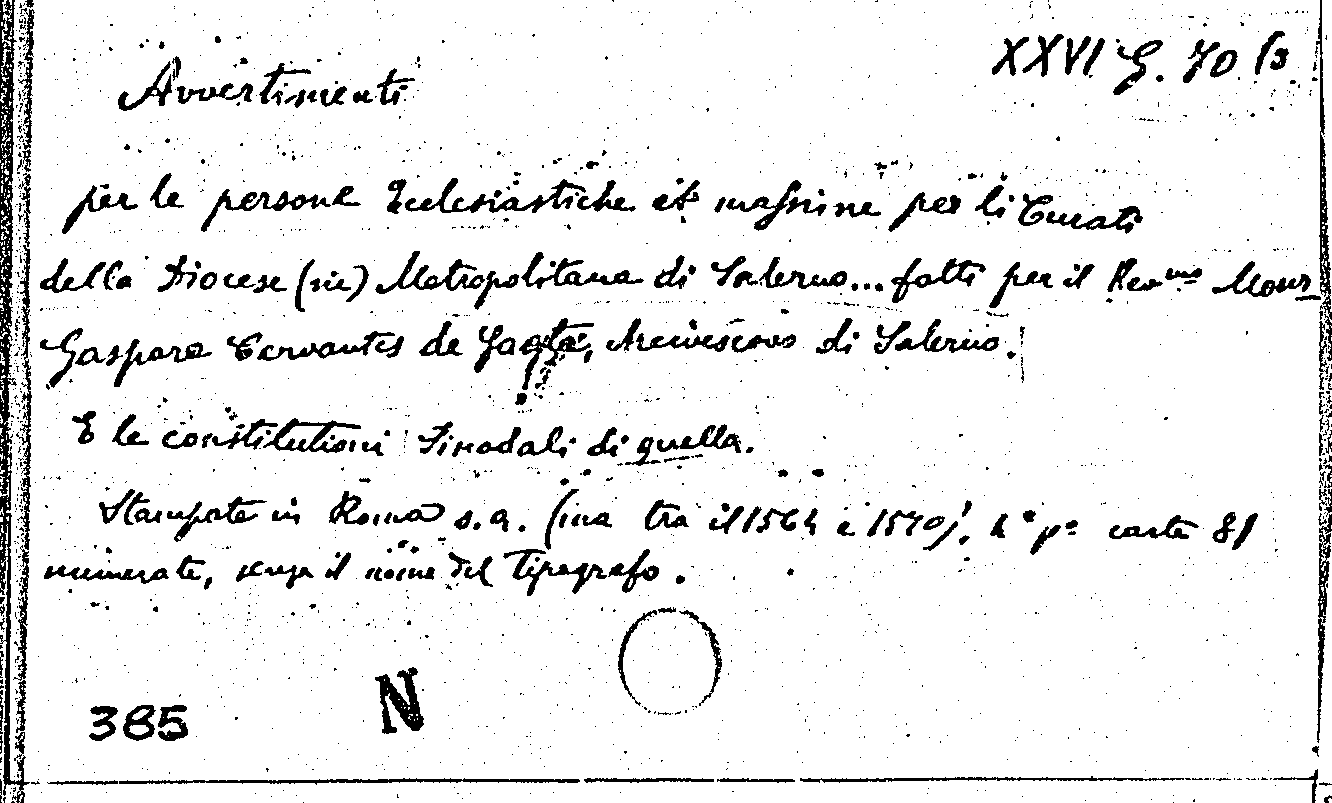 XXVI G. 70 (3
Avvertimenti
per le persone Ecclesiastiche et massime per li Curati
della Diocese (sic) Metropolitana di Salerno... fatti per il Rev.mo Mons.
Gaspare Cervantes de Gaeta, Arcivescovo di Salerno.
E le constitutioni Sinodali di quella.
Stampate in Roma s.a. (ma tra il 1564 e 1570), carte 81
numerate, senza il nome del Tipografo.
385 N